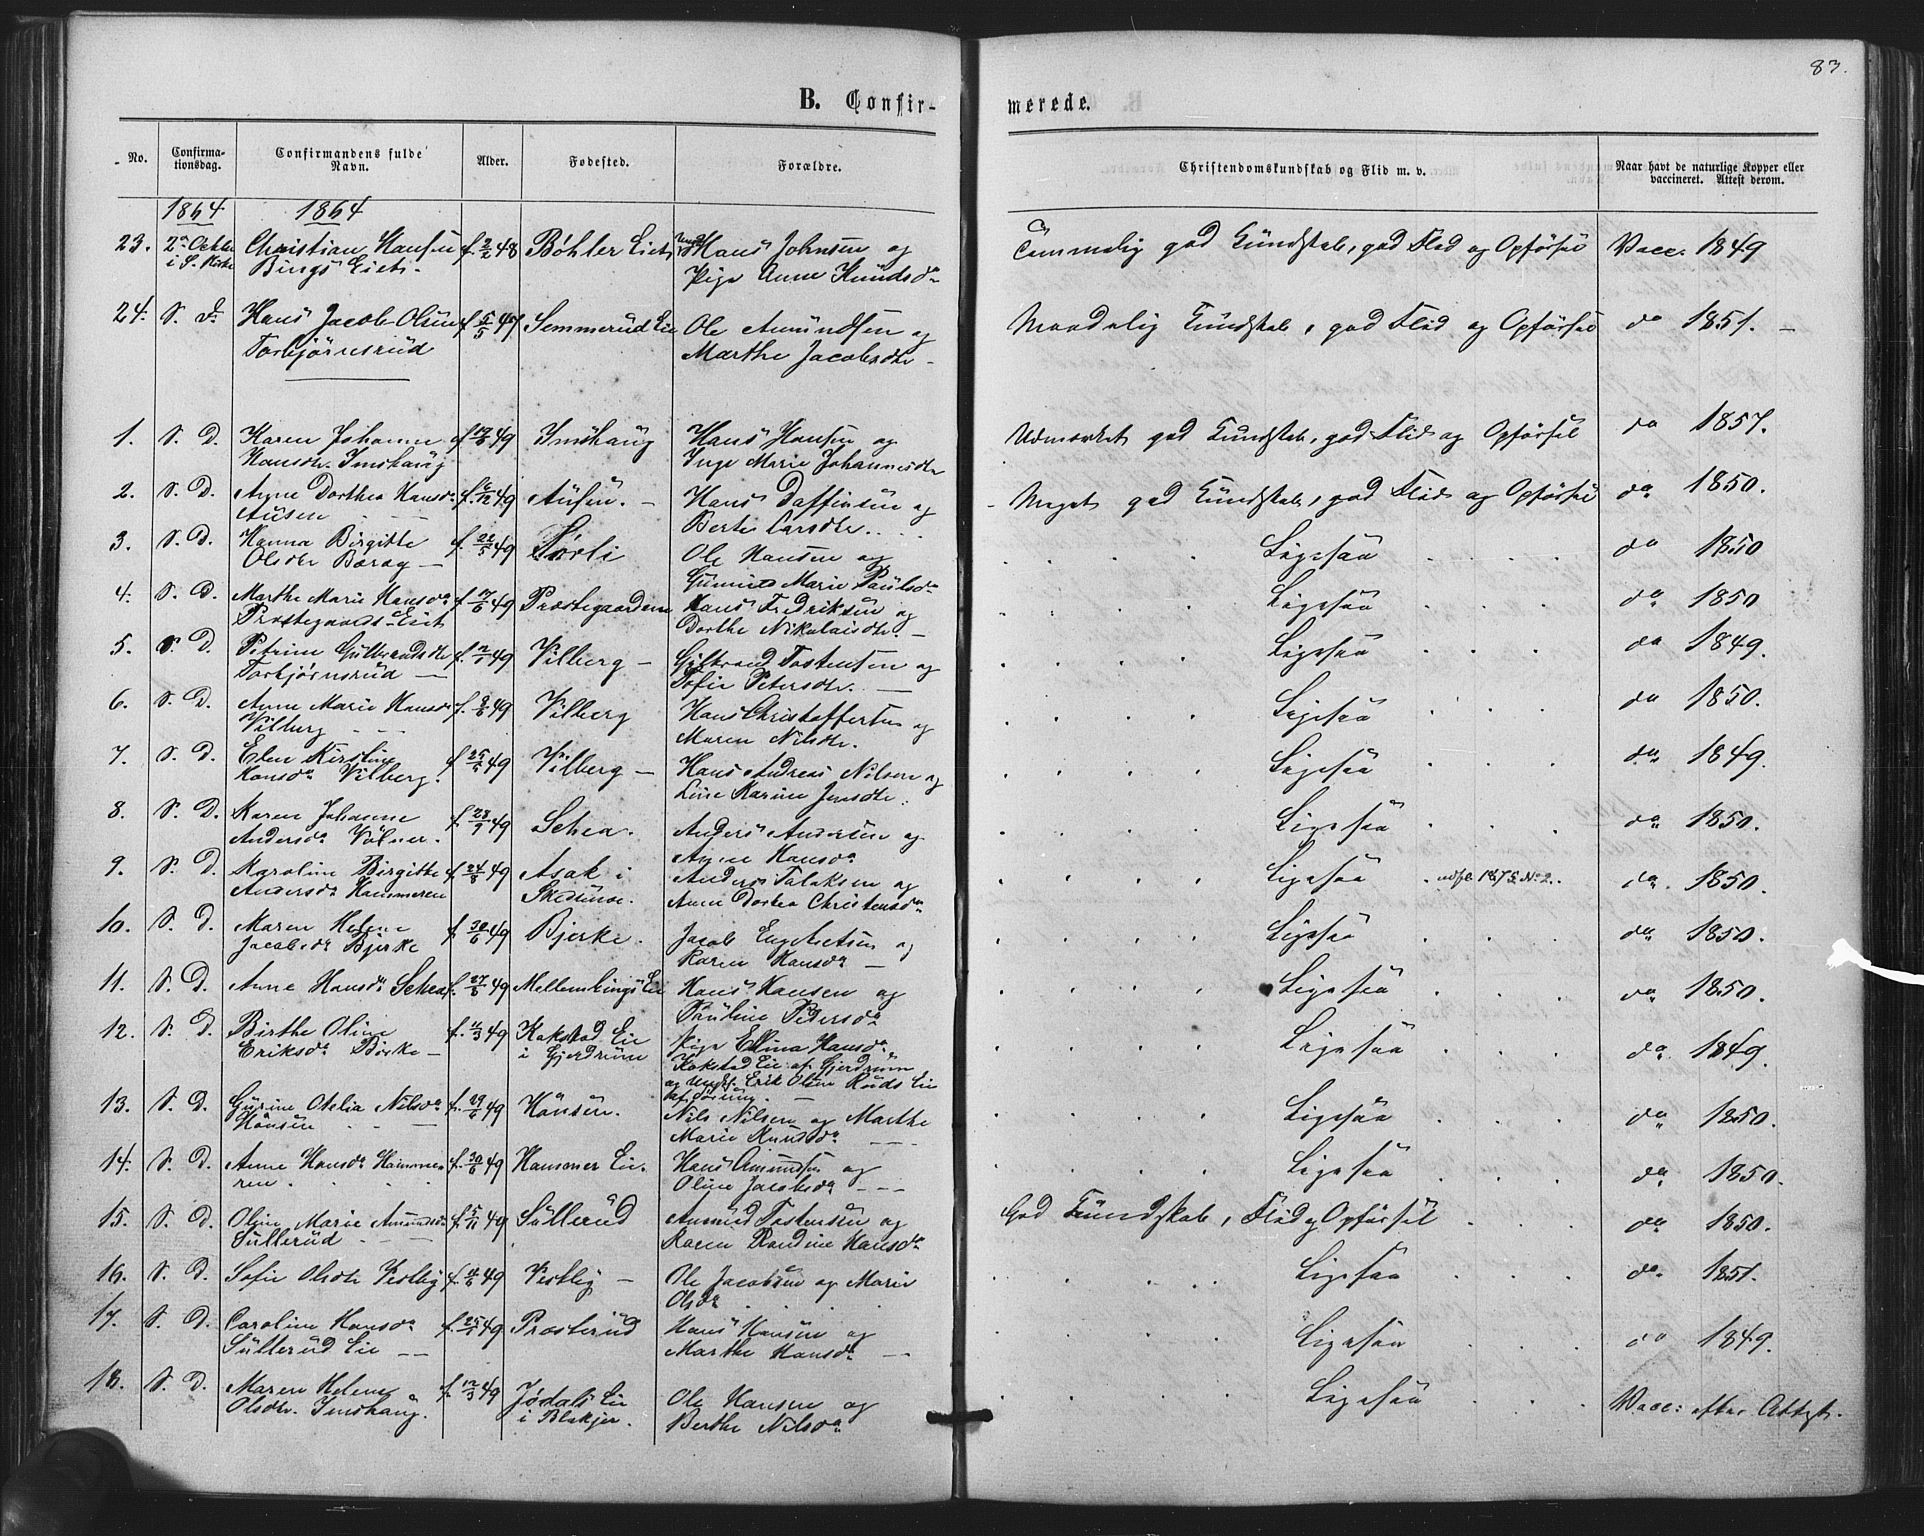 83.
B. Confirmerede.
No. Confirmationsdag. Confirmandens fulde Navn. Alder. Fødested. Forældre. Christendomskundskab og Flid m. v. Naar havt de naturlige Kopper eller vaccineret. Attest derom.
1864. 1864
23. 2den Octbr i S. Kirke Christian Hansen Bings Eiet. f. 2/2 48 Bøhler Eiet Hans Johnsen og Pige Anne Knudsdr Temmelig god Kundskab, god Flid og Opførsel Vacc. 1849
24. S. D. Hans Jacob Olsen Torbjørnsrud f. 5/5 47 Semmerud Eie Ole Amundsen og Marthe Jacobsdtr Maadelig Kundskab, god Flid og Opførsel do 1851.
1. S. D. Karen Johanne Hansdtr. Imshaug f. 49 Imshaug Hans Hansen og Inge Marie Johannesdtr Udmærket god Kundskab, god Flid og Opførsel do 1857.
2. S. D. Anne Dorthea Hansdr Ausen f. 6/12 49 Ausen. Hans Daffinsen og Berte Larsdtr. Meget god Kundskab, god Flid og Opførsel do 1850.
3. S. D. Hanna Birgitte Olsdtr Borog f. 22/5 49 Sørli Ole Hansen og Gunnild Marie Paulsdr Ligesaa do 1850
4. S. D. Marthe Marie Hansdr Præstegaards Eiet f. 17/6 49 Præstegaarden Hans Fredriksen og Dorthe Nikolaisdtr. Ligesaa do 1850
5. S. D. Petrine Gulbrandsdtr Torbjørnsrud f. 49 Vilberg Gulbrand Tostensen og Sofie Petersdtr. Ligesaa do 1849.
6. S. D. Anne Marie Hansdr Vilberg f. 49 Vilberg Hans Christoffersen og Maren Nilsdtr. Ligesaa do 1850.
7. S. D. Elen Kirstine Hansdr Vilberg. f. 49 Vilberg Hans Andreas Nilsen og Line Karine Jensdtr. Ligesaa do 1849.
8. S. D. Karen Johanne Andersdr Volner. f. 28/9 49 Schea. Anders Andersen og Anne Hansdr Ligesaa do 1850.
9. S. D. Karoline Birgitte Andersdr Hammeren f. 24/8 49 Asak i Skedsmoe. Anders Talaksen og Anne Dortea Christensdr Ligesaa udfl. 1875 No 2. do. 1850.
10. S. D. Maren Helene Jacobsdr Bjerke f. 30/6 49 Bjerke. Jacob Engebretsen og Karen Hansdr Ligesaa do 1850.
11. S. D. Anne Hansdr Schea f. 27/6 49 Mellembings Eie Hans Hansen og Pauline Pedersdr Ligesaa do 1850.
12. S. D. Birthe Oline Eriksdr Borke f. 11/3 49 Kokstad Eie i Gjerdrum Pige Ellina Hansdr Kokstad Eie af Gjerdrum og Ungk. Erik Olsen Ruds Eie af Sørum. Ligesaa do 1849.
13. S. D. Gurine Otelia Nilsdr Hønsen f. 29/6 49 Hønsen. Nils Nilsen og Marthe Marie Knudsdr Ligesaa do 1850.
14. S. D. Anne Hansdr Hammeren. f. 30/6 49 Hammer Eie. Hans Amundsen og Oline Jacobsdr Ligesaa do 1850.
15. S. D. Oline Marie Amundsdr Sullerud f. 5/11 49 Sullerud Amund Tostensen og Karen Randine Hansdr God Kundskab, Flid og Opførsel do 1850.
16. S. D. Sofie Olsdtr Vestby f. 49 Vestby Ole Jacobsen og Marie Olsdr Ligesaa do. 1851.
17. S. D. Caroline Hansdr Sullerud Eie f. 49 Præsterud Hans Hansen og Marthe Hansdr Ligesaa do 1849.
18. S. D. Maren Helene Olsdtr. Imshaug. f. 12/3 49 Jødals Eie i Blakjer. Ole Hansen og Berthe Nilsdr Ligesaa Vacc: efter Attest.